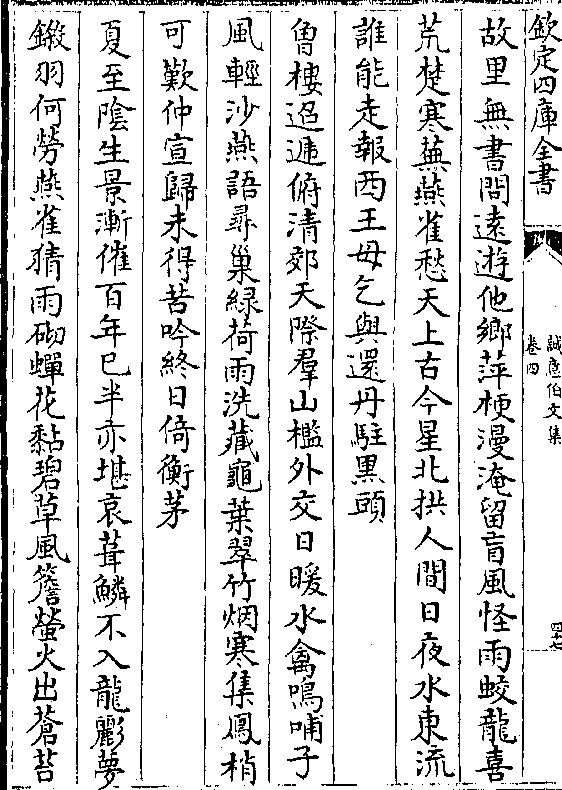 欽定四庫全書
誠意伯文集
卷四
四七
故里無書問遠遊他鄉萍梗漫淹留盲風怪雨蛟龍喜
荒楚寒蕪燕雀愁天上古今星北拱人間日夜水東流
誰能走報西王母乞與還丹駐黒頭
魯樓迢遞俯清郊天際羣山檻外交日暖水禽鳴哺子
風輕沙燕語尋巢緑荷雨洗藏龜葉翠竹烟寒集鳳梢
可歎仲宣歸未得苦吟終日倚衡茅
夏至陰生景漸催百年已半亦堪哀葺鱗不入龍髟夢
鎩羽何勞燕雀猜雨砌蟬花黏碧草風簷螢火出蒼苔